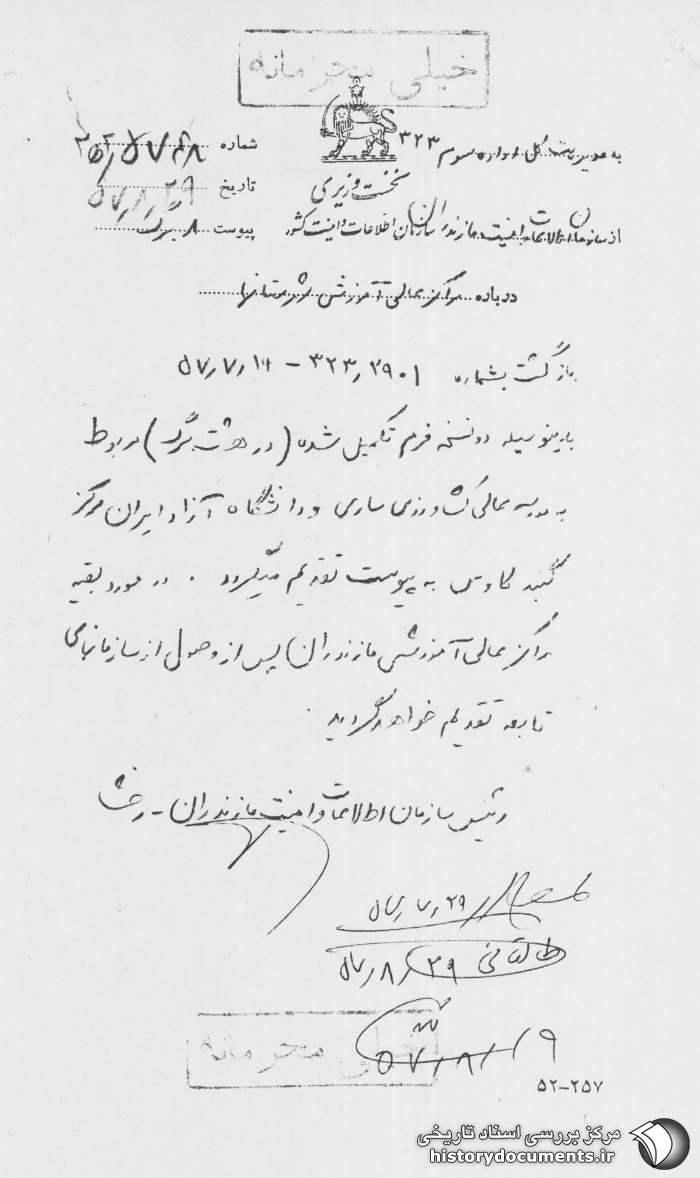 خیلی محرمانه
به مدیریت کل اداره سوم ۳۲۳
شماره
نخست وزیری
تاریخ ۵۷/۸/۲۹
از سازمان اطلاعات و امنیت مازندران
سازمان اطلاعات و امنیت کشور
پیوست ۸ برگ
درباره مراکز عالی آموزش شهرستانها
بازگشت بشماره ۳۲۳/۲۹۰۱ -
بدینوسیله دو نسخه فرم تکمیل شده (در هشت برگ) مربوط
به مدرسه عالی کشاورزی ساری و دانشگاه آزاد ایران مرکز
گنبد کاوس به پیوست تقدیم میگردد . در مورد بقیه
مراکز عالی آموزشی مازندران پس از وصول از سازمانهای
تابعه تقدیم خواهد گردید.
رئیس سازمان اطلاعات و امنیت مازندران -
طالقانی ۲۹/۸/۵۷
خیلی محرمانه
۵۲-۲۵۷
مرکز بررسی اسناد تاریخی
historydocuments.ir